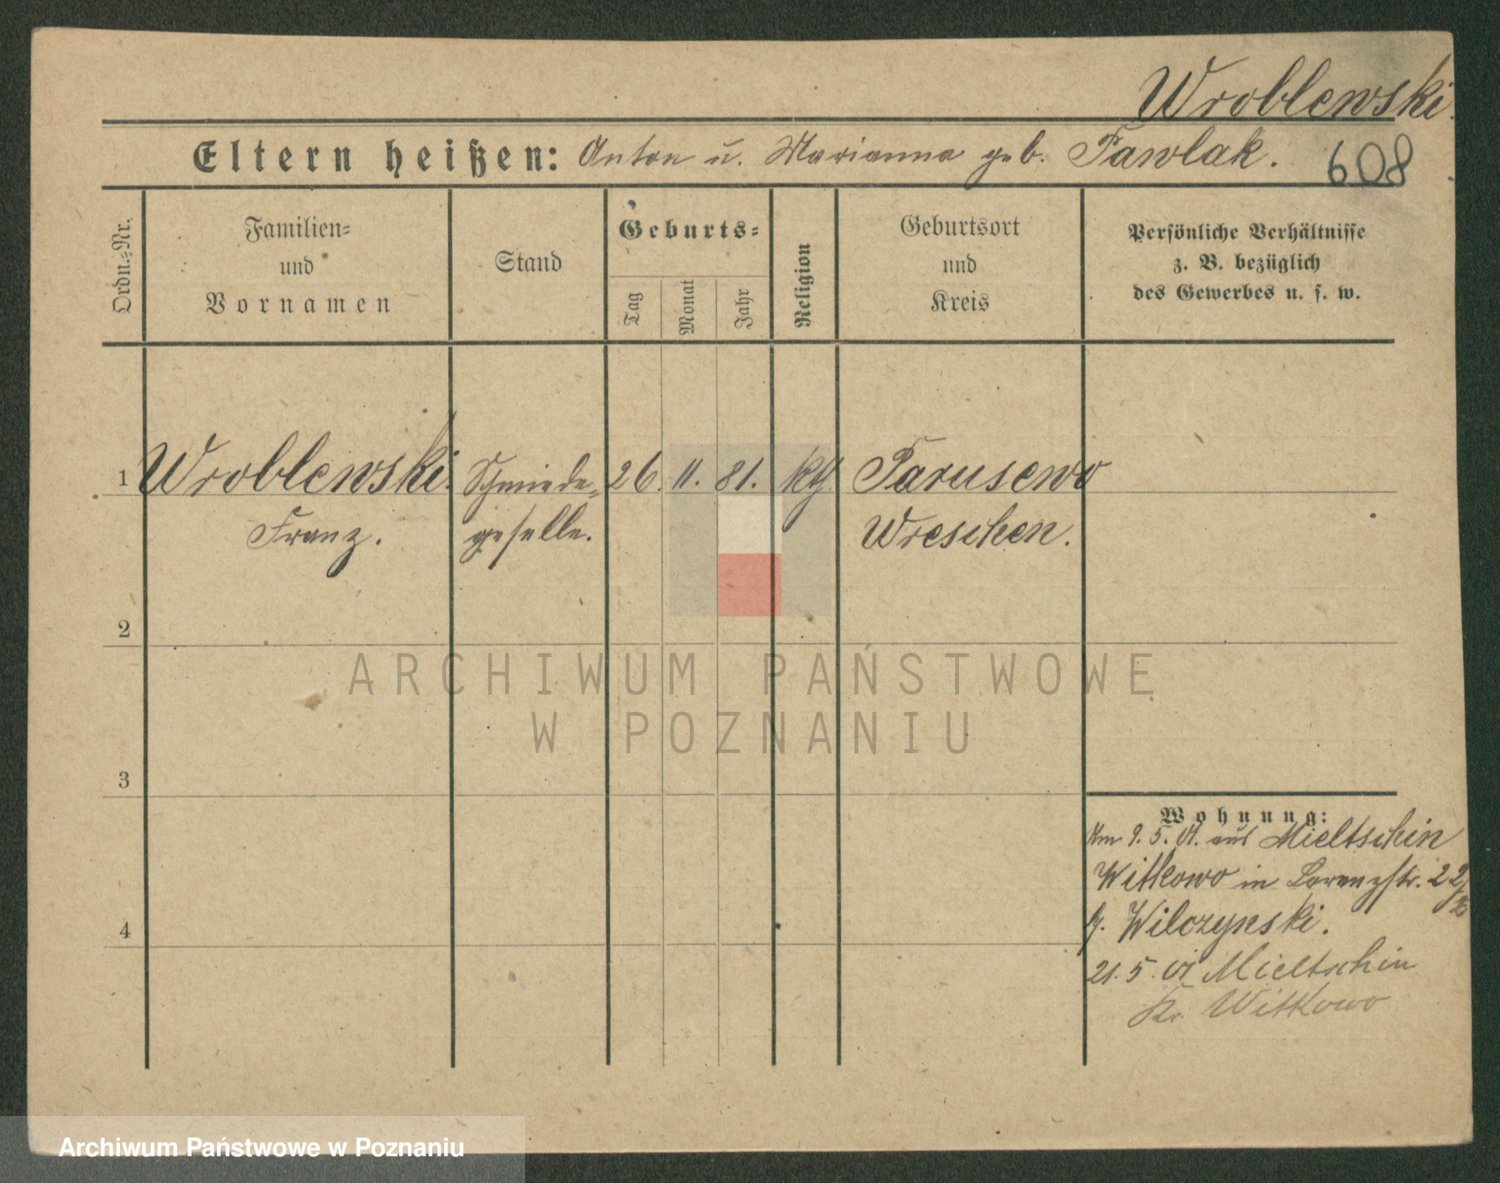 Wroblewski.
Eltern heißen: Anton u. Marianna geb. Pawlak.
608
Ordn.-Nr.
Familien-
und
Vornamen
Stand
Geburts-
Tag
Monat
Jahr
Religion
Geburtsort
und
Kreis
Persönliche Verhältnisse
z. B. bezüglich
des Gewerbes u. s. w.
1 Wroblewski. Schmiede- 26. 11. 81. kth Parusewo
Franz. geselle. Wreschen.
2
3
4
Wohnung:
Am 9. 5. 01. aus Mieltschin
Witkowo in Lorenzstr. 22
b. Wilczynski.
21. 5. 01 Mieltschin
Kr. Witkowo
ARCHIWUM PAŃSTWOWE
W POZNANIU
Archiwum Państwowe w Poznaniu